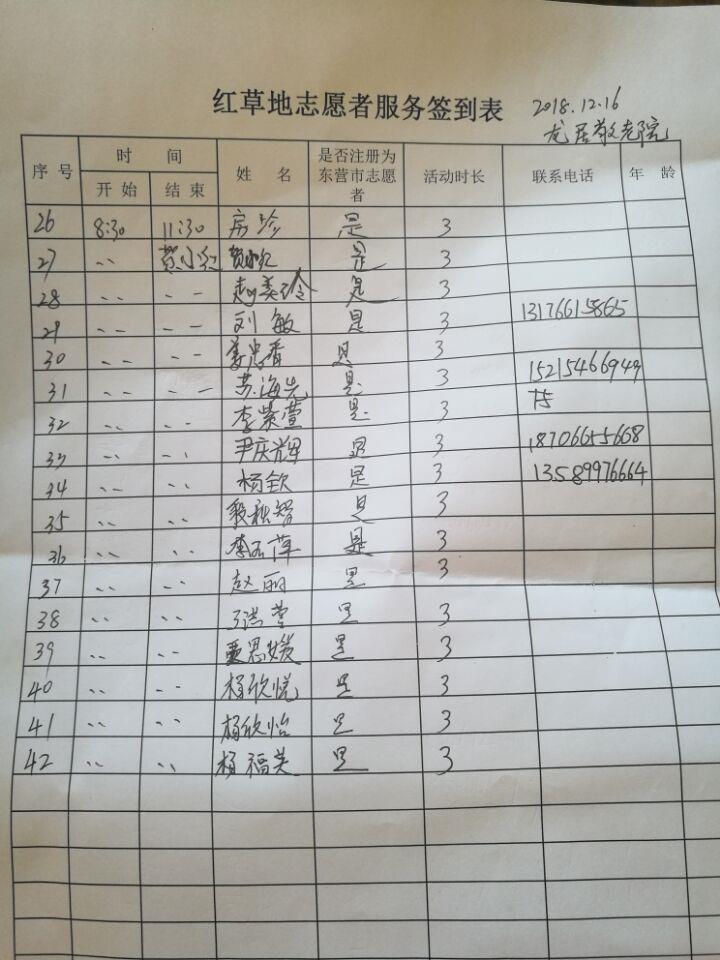 红草地志愿者服务签到表 2018.12.16
龙居敬老院
序号 时间 姓名 是否注册为东营市志愿者 活动时长 联系电话 年龄
开始 结束
26 8:30 11:30 房珍 是 3
27 〃 贾小红 贾小红 是 3
28 〃 〃 赵美玲 是 3
29 〃 〃 刘敏 是 3 13176615865
30 〃 〃 是 3
31 〃 〃 苏海先 是 3 15215466949
32 〃 〃 李紫萱 是 3
33 〃 〃 尹庆辉 是 3 18706655668
34 〃 〃 杨钦 是 3 13589976664
35 〃 〃 是 3
36 〃 〃 是 3
37 〃 〃 赵丽 是 3
38 〃 〃 是 3
39 〃 〃 是 3
40 〃 〃 杨欣悦 是 3
41 〃 〃 杨欣怡 是 3
42 〃 〃 杨福英 是 3